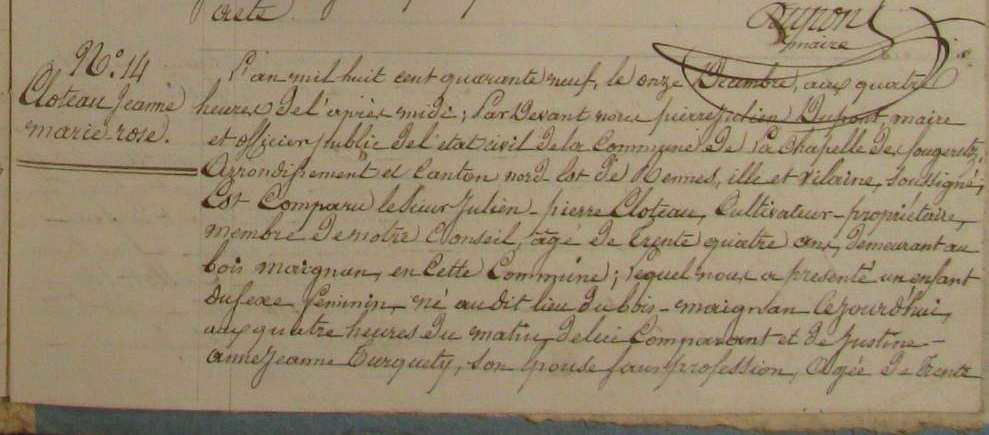 crete.
Dupont
maire
N.º 14
Cloteau Jeanne
marie-rose.
L'an mil huit cent quarante neuf, le onze Décembre, aux quatre
heures de l'après midi ; Par Devant nous pierre julien Dupont, maire
et officier public de l'état civil de la Commune de La Chapelle de fougeretz,
Arrondissement et Canton nord Est de Rennes, ille et vilaine, soussigné ;
Est Comparu le Sieur Julien-pierre Cloteau, Cultivateur-propriétaire,
membre de notre Conseil, âgé de Trente quatre ans, demeurant au
bois maignan, en Cette Commune ; lequel nous a présenté un enfant
du sexe féminin, né au dit lieu du bois-maignan Cejourd'hui,
aux quatre heures du matin, de lui Comparant et de Justine-
anne Jeanne Turquety, son épouse sans profession, Agée de Trente